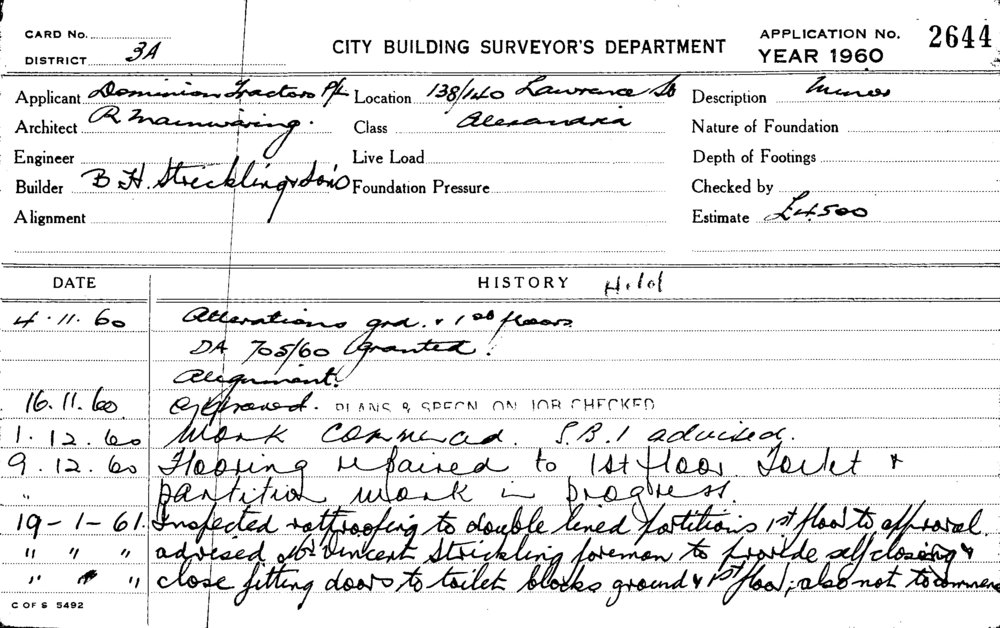 CARD No.
DISTRICT 3A
CITY BUILDING SURVEYOR'S DEPARTMENT
APPLICATION No. 2644
YEAR 1960
Applicant Dominion Tractors P/L Location 138/140 Lawrence St Description Minor
Architect R Mainwaring. Class Alexandria Nature of Foundation
Engineer Live Load Depth of Footings
Builder B H. Strickling & Sons Foundation Pressure Checked by
Alignment Estimate £4500
DATE HISTORY
4.11.60 Alterations grd. & 1st floors
DA 705/60 Granted.
Alignment.
16.11.60 Approved. PLANS & SPECN ON JOB CHECKED
1.12.60 Work commenced. S.B.1 advised.
9.12.60 Flooring repaired to 1st floor Toilet &
" partition work in progress.
19-1-61. Inspected ratproofing to double lined partitions 1st floor to approval
" " " advised Mr Vincent Strickling foreman to provide self closing &
" " " close fitting doors to toilet blocks ground & 1st floor; also not to commence
C OF S 5492